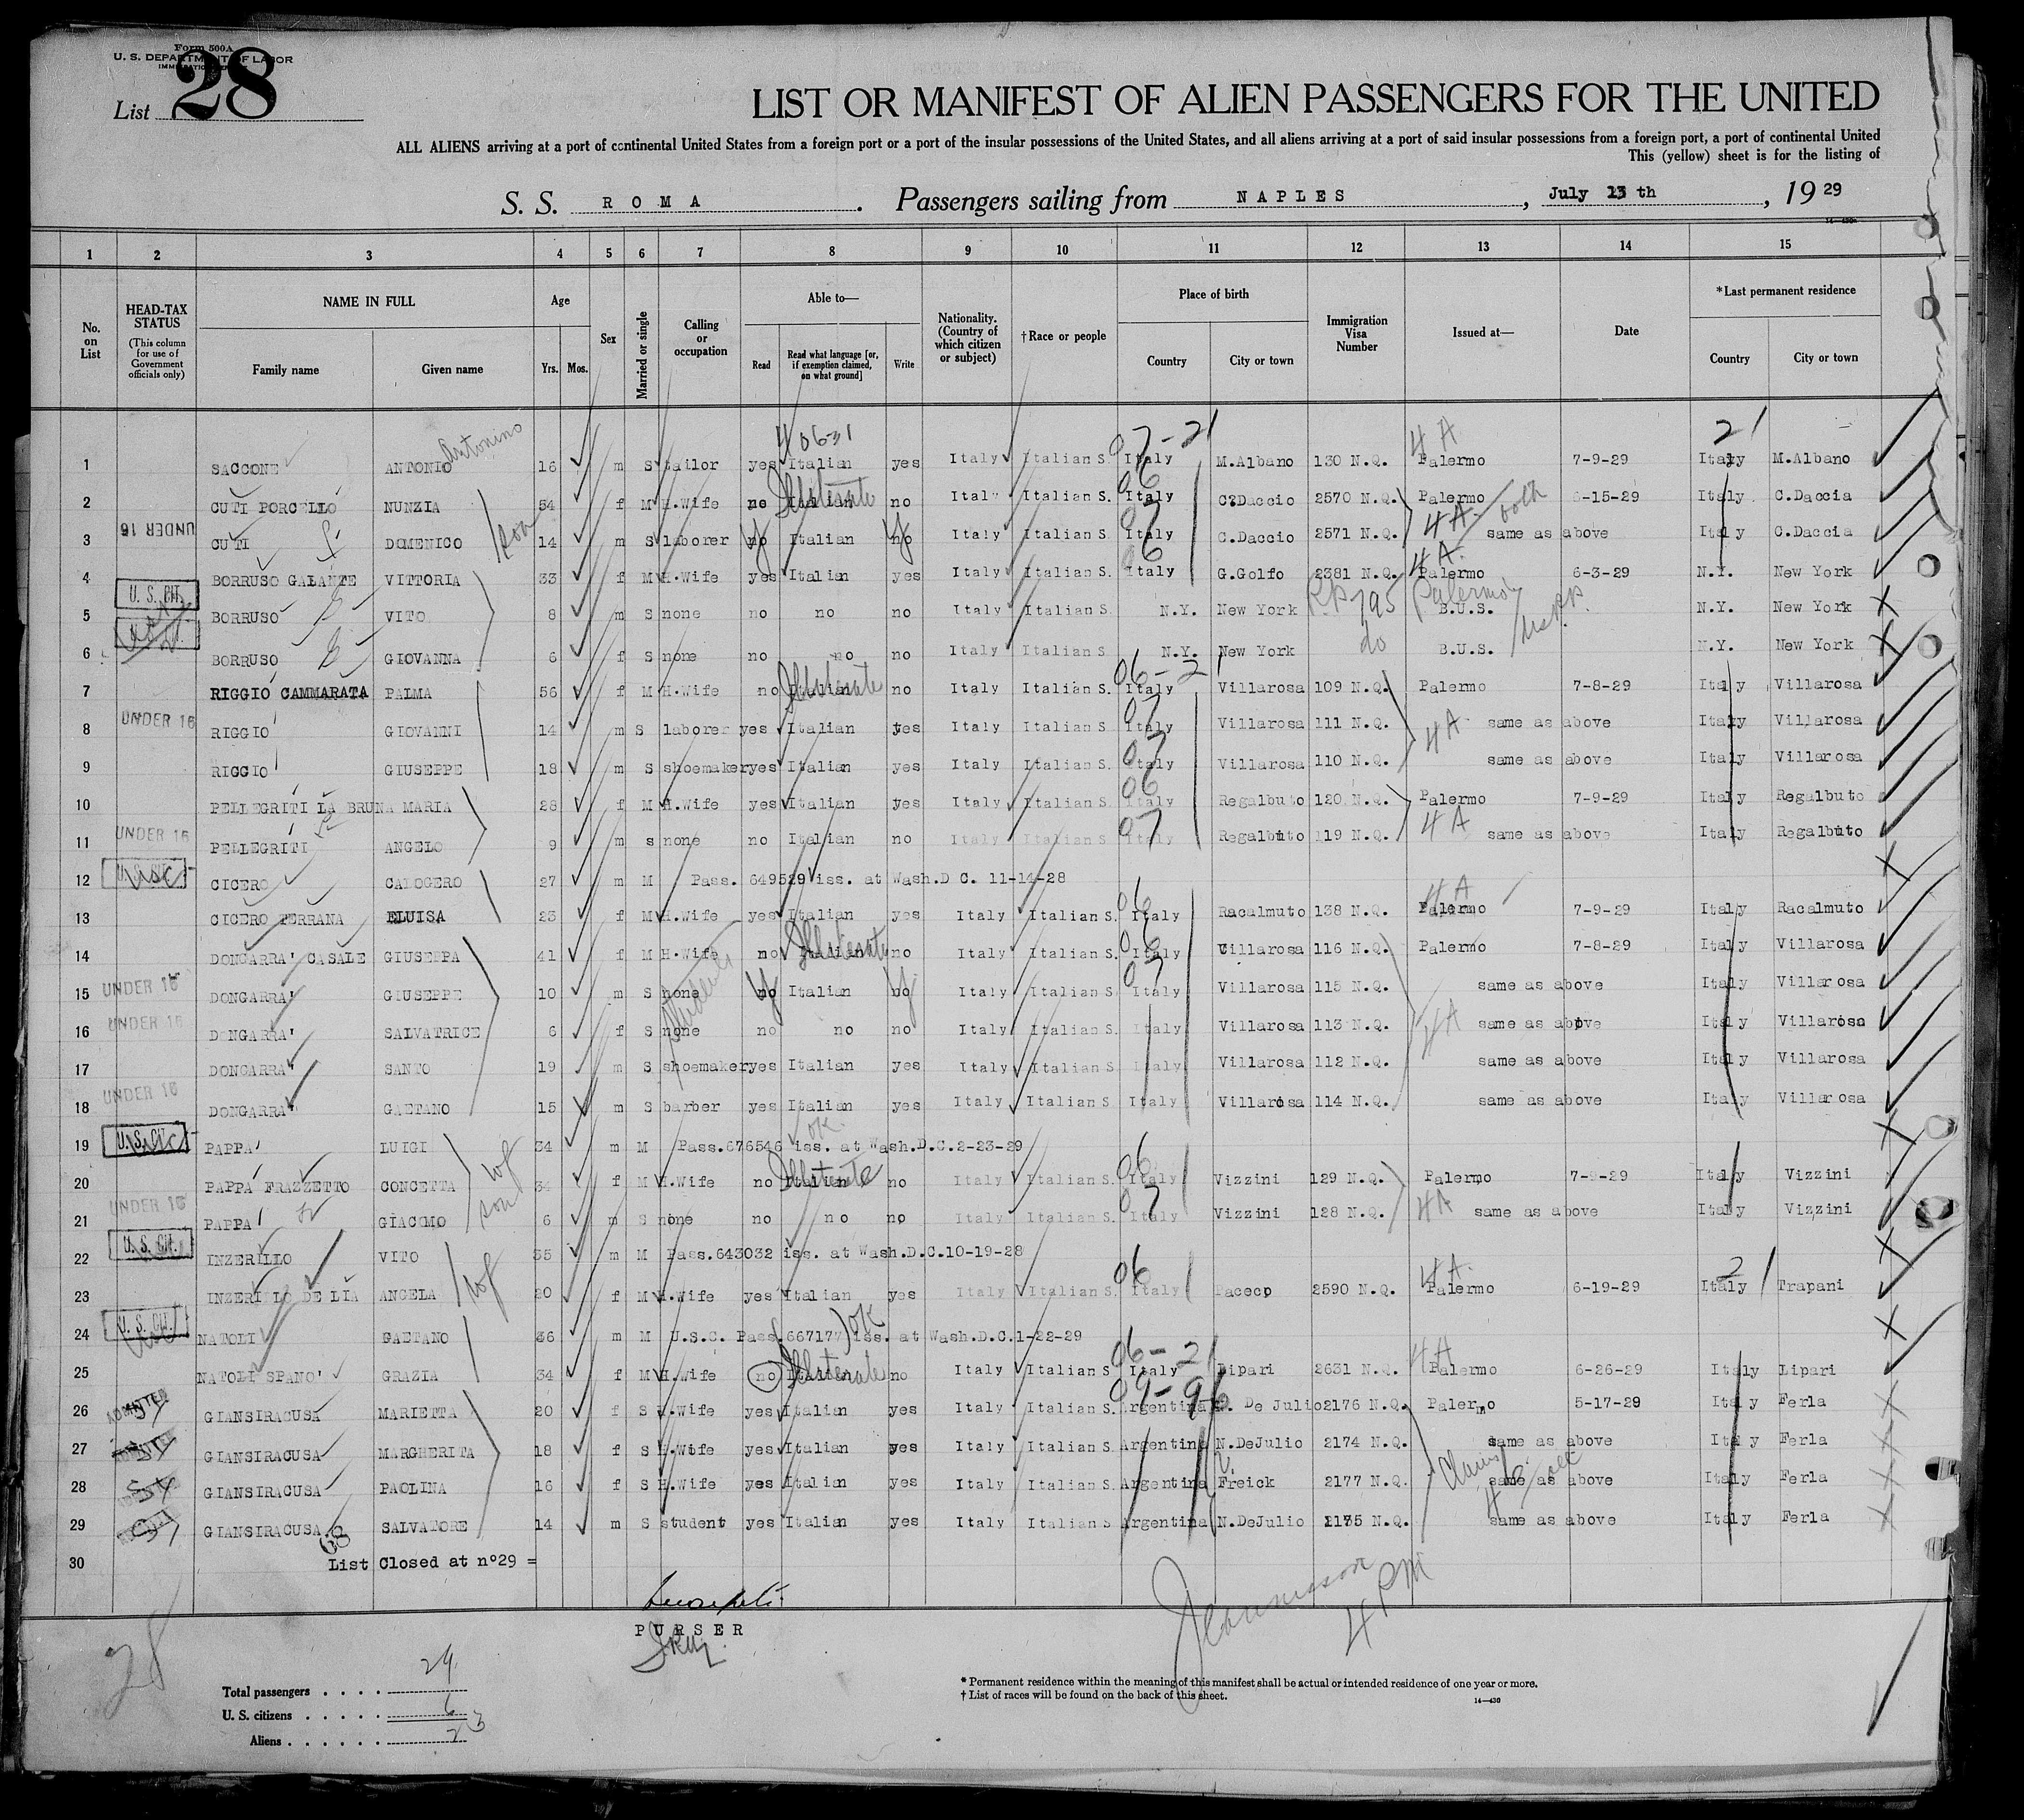 Form 500A
U. S. DEPARTMENT OF LABOR
List 28
LIST OR MANIFEST OF ALIEN PASSENGERS FOR THE UNITED
ALL ALIENS arriving at a port of continental United States from a foreign port or a port of the insular possessions of the United States, and all aliens arriving at a port of said insular possessions from a foreign port, a port of continental United
This (yellow) sheet is for the listing of
S. S. ROMA. Passengers sailing from NAPLES, July 13 th, 19 29
1 2 3 4 5 6 7 8 9 10 11 12 13 14 15
No. on List
HEAD-TAX STATUS (This column for use of Government officials only)
NAME IN FULL Family name Given name
Age Yrs. Mos.
Sex
Married or single
Calling or occupation
Able to— Read Read what language [or, if exemption claimed, on what ground] Write
Nationality. (Country of which citizen or subject)
†Race or people
Place of birth Country City or town
Immigration Visa Number
Issued at—
Date
*Last permanent residence Country City or town
Antonino 40631 07-21 4A 21
1 SACCONE ANTONIO 16 m S tailor yes Italian yes Italy Italian S. Italy M.Albano 130 N.Q. Palermo 7-9-29 Italy M.Albano
2 CUTI PORCELLO NUNZIA 54 f M H.Wife no Italian Illiterate no Italy Italian S. 06 Italy C.Daccio 2570 N.Q. Palermo 6-15-29 Italy C.Daccia
3 UNDER 16 CUTI DOMENICO son 14 m S laborer no Italian no Italy Italian S. 07 Italy C.Daccio 2571 N.Q. 4A both same as above Italy C.Daccia
4 BORRUSO GALANTE VITTORIA 33 f M H.Wife yes Italian yes Italy Italian S. 06 Italy G.Golfo 2381 N.Q. 4A. Palermo 6-3-29 N.Y. New York
5 U. S. CIT. BORRUSO VITO 8 m S none no no no Italy Italian S. N.Y. New York 795 Palermo B.U.S. N.Y. New York
6 BORRUSO GIOVANNA 6 f S none no no no Italy Italian S. N.Y. New York do B.U.S. N.Y. New York
7 RIGGIO CAMMARATA PALMA 56 f M H.Wife no Italian Illiterate no Italy Italian S. 06-21 Italy Villarosa 109 N.Q. Palermo 7-8-29 Italy Villarosa
8 UNDER 16 RIGGIO GIOVANNI 14 m S laborer yes Italian yes Italy Italian S. 07 Italy Villarosa 111 N.Q. 4A same as above Italy Villarosa
9 RIGGIO GIUSEPPE 18 m S shoemaker yes Italian yes Italy Italian S. 07 Italy Villarosa 110 N.Q. same as above Italy Villarosa
10 PELLEGRITI LA BRUNA MARIA 28 f M H.Wife yes Italian yes Italy Italian S. 06 Italy Regalbuto 120 N.Q. Palermo 7-9-29 Italy Regalbuto
11 UNDER 16 PELLEGRITI ANGELO 9 m s none no Italian no Italy Italian S. 07 Italy Regalbuto 119 N.Q. 4A same as above Italy Regalbuto
12 U. S. CIT. USC CICERO CALOGERO 27 m M Pass. 649529 iss. at Wash.D C. 11-14-28
13 CICERO TERRANA ELUISA 23 f M H.Wife yes Italian yes Italy Italian S. 06 Italy Racalmuto 138 N.Q. 4A Palermo 7-9-29 Italy Racalmuto
14 DONGARRA' CASALE GIUSEPPA 41 f M H.Wife no Italian Illiterate no Italy Italian S. 06 Italy Villarosa 116 N.Q. Palermo 7-8-29 Italy Villarosa
15 UNDER 16 DONGARRA' GIUSEPPE 10 m S none student no Italian no Italy Italian S. 07 Italy Villarosa 115 N.Q. same as above Italy Villarosa
16 UNDER 16 DONGARRA' SALVATRICE 6 f S none no no no Italy Italian S. Italy Villarosa 113 N.Q. 4A same as above Italy Villarosa
17 DONGARRA' SANTO 19 m S shoemaker yes Italian yes Italy Italian S. Italy Villarosa 112 N.Q. same as above Italy Villarosa
18 UNDER 16 DONGARRA' GAETANO 15 m S barber yes Italian yes Italy Italian S. Italy Villarosa 114 N.Q. same as above Italy Villarosa
19 U. S. CIT. PAPPA' LUIGI 34 m M Pass.676546 iss. at Wash.D.C.2-23-29 OK
20 PAPPA FRAZZETTO CONCETTA wf 34 f M H.Wife no Italian Illiterate no Italy Italian S. 06 Italy Vizzini 129 N.Q. Palermo 7-9-29 Italy Vizzini
21 UNDER 16 PAPPA' GIACOMO son 6 m S none no no no Italy Italian S. 07 Italy Vizzini 128 N.Q. 4A same as above Italy Vizzini
22 U. S. CIT. INZERILLO VITO 35 m M Pass.643032 iss. at Wash.D.C.10-19-28
23 INZERILLO DE LIA ANGELA wf 20 f M H.Wife yes Italian yes Italy Italian S. 06 Italy Paceco 2590 N.Q. 4A. Palermo 6-19-29 21 Italy Trapani
24 U. S. CIT. NATOLI GAETANO 36 m M U.S.C. Pass.667177 iss. at Wash.D.C.1-22-29 OK
25 NATOLI SPANO' GRAZIA 34 f M H.Wife no Italian Illiterate no Italy Italian S. 06-21 Italy Lipari 2631 N.Q. 4A Palermo 6-26-29 Italy Lipari
26 ADMITTED GIANSIRACUSA MARIETTA 20 f S H.Wife yes Italian yes Italy Italian S. 09-96 Argentina De Julio 2176 N.Q. Palermo 5-17-29 Italy Ferla
27 GIANSIRACUSA MARGHERITA 18 f S H.Wife yes Italian yes Italy Italian S. Argentina N.DeJulio 2174 N.Q. same as above Italy Ferla
28 GIANSIRACUSA PAOLINA 16 f S H.Wife yes Italian yes Italy Italian S. Argentina Freick 2177 N.Q. same as above Italy Ferla
29 GIANSIRACUSA SALVATORE 14 m S student yes Italian yes Italy Italian S Argentina N.DeJulio 2175 N.Q. same as above Italy Ferla
30 List Closed at n°29 =
PURSER
4 PM
28
Total passengers . . . . 29
U. S. citizens . . . . . 6
Aliens . . . . . . 23
* Permanent residence within the meaning of this manifest shall be actual or intended residence of one year or more.
† List of races will be found on the back of this sheet.
14—430